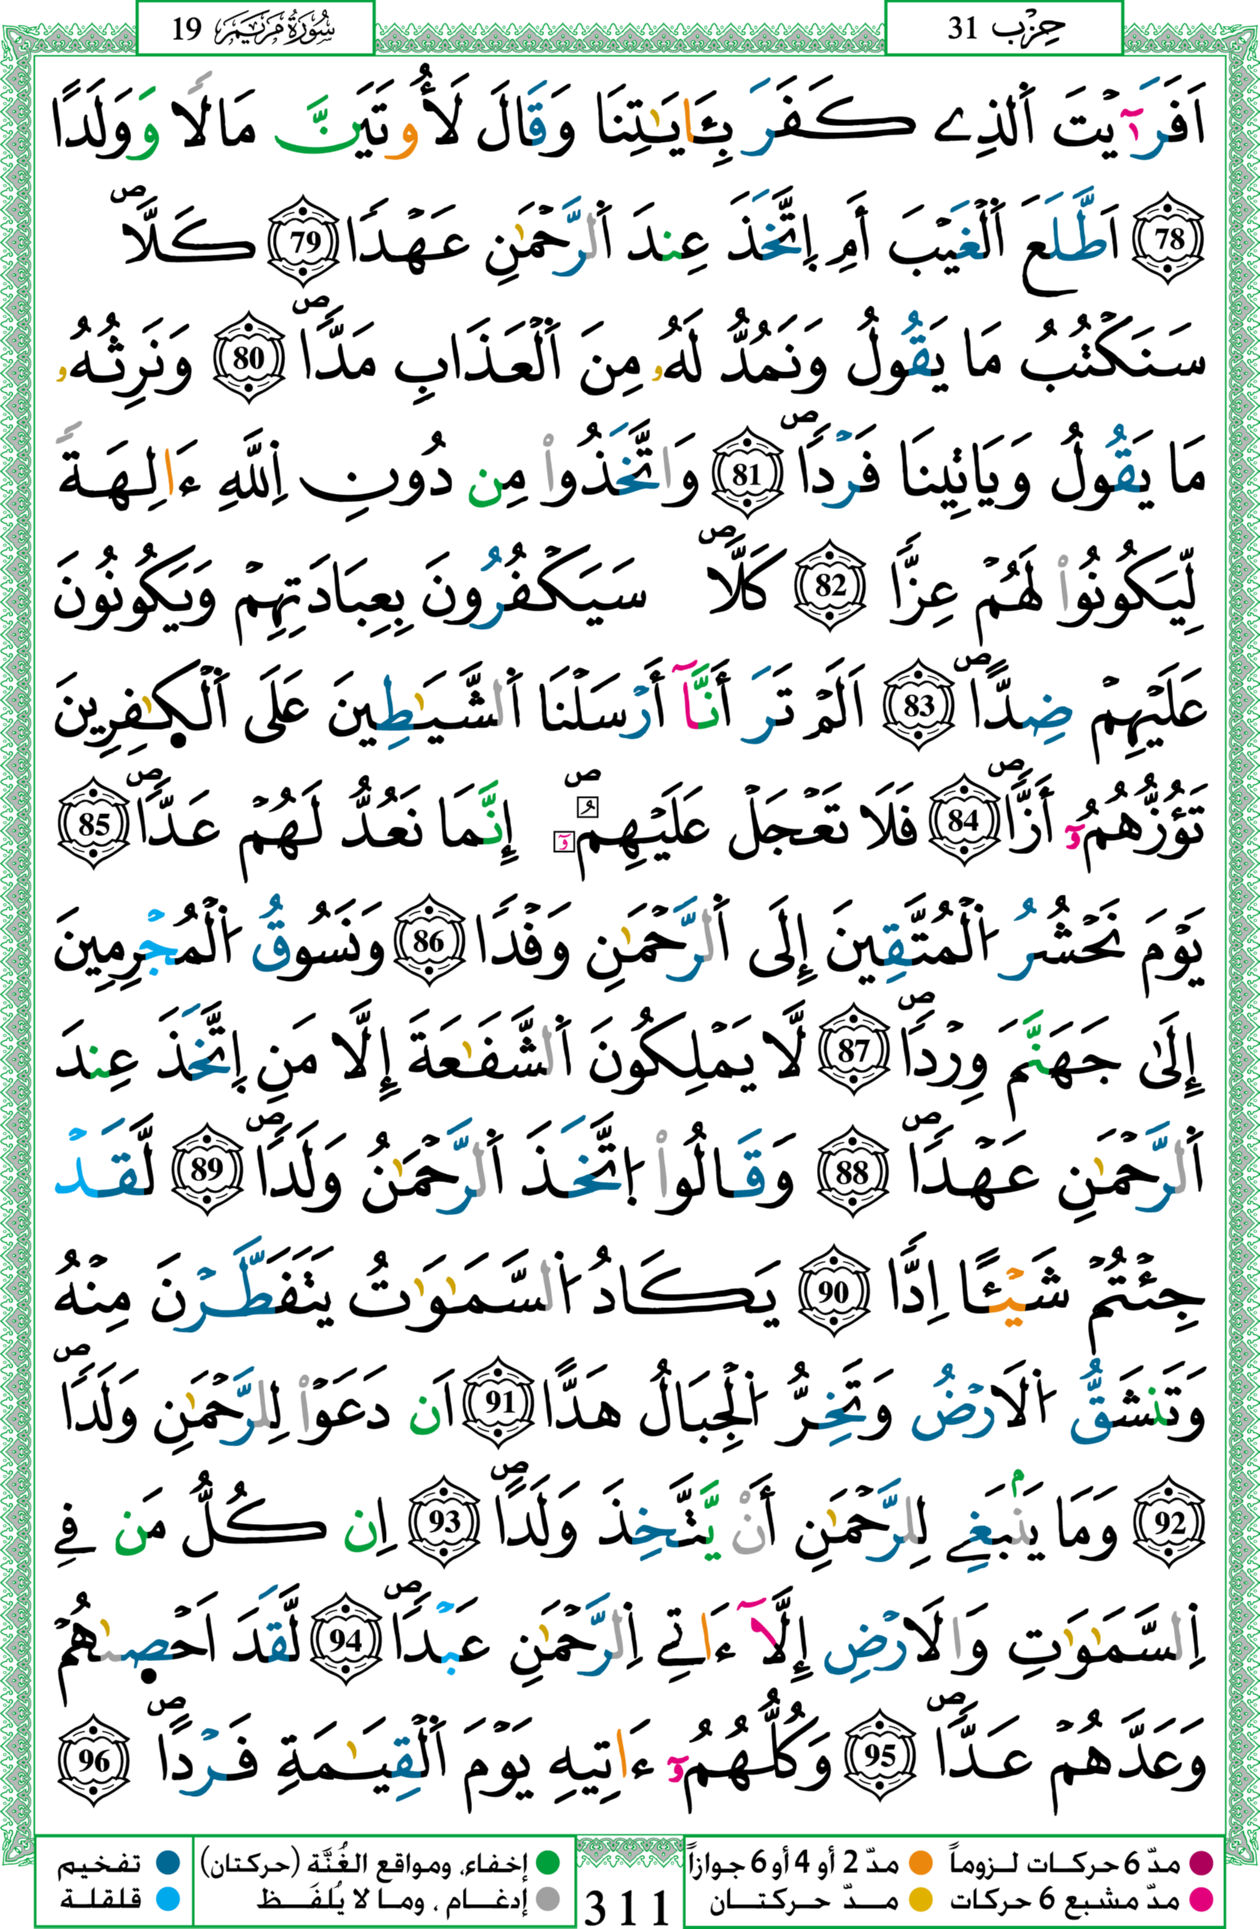 سُورَةُ مَرْيَمَ 19
حِزْب 31
اَفَرَٰٓيْتَ اَ۬لذِے كَفَرَ بِـَٔايَٰتِنَا وَقَالَ لَأُوتَيَنَّ مَالاٗ وَوَلَداًۖ
78 اَطَّلَعَ اَ۬لْغَيْبَ أَمِ اِ۪تَّخَذَ عِندَ اَ۬لرَّحْمَٰنِ عَهْداٗ 79 كَلَّاۖ
سَنَكْتُبُ مَا يَقُولُ وَنَمُدُّ لَهُۥ مِنَ اَ۬لْعَذَابِ مَدّاٗۖ 80 وَنَرِثُهُۥ
مَا يَقُولُ وَيَاتِينَا فَرْداٗۖ 81 وَاتَّخَذُواْ مِن دُونِ اِ۬للَّهِ ءَالِهَةٗ
لِّيَكُونُواْ لَهُمْ عِزّاٗ 82 كَلَّاۖ سَيَكْفُرُونَ بِعِبَادَتِهِمْ وَيَكُونُونَ
عَلَيْهِمْ ضِدّاًۖ 83 اَلَمْ تَرَ أَنَّآ أَرْسَلْنَا اَ۬لشَّيَٰطِينَ عَلَى اَ۬لْكٰ۪فِرِينَ
تَؤُزُّهُمُۥٓ أَزّاٗۖ 84 فَلَا تَعْجَلْ عَلَيْهِمُۥٓۖ إِنَّمَا نَعُدُّ لَهُمْ عَدّاٗۖ 85
يَوْمَ نَحْشُرُ اُ۬لْمُتَّقِينَ إِلَى اَ۬لرَّحْمَٰنِ وَفْداٗ 86 وَنَسُوقُ اُ۬لْمُجْرِمِينَ
إِلَىٰ جَهَنَّمَ وِرْداٗۖ 87 لَّا يَمْلِكُونَ اَ۬لشَّفَٰعَةَ إِلَّا مَنِ اِ۪تَّخَذَ عِندَ
اَ۬لرَّحْمَٰنِ عَهْداٗۖ 88 وَقَالُواْ اُ۪تَّخَذَ اَ۬لرَّحْمَٰنُ وَلَداٗۖ 89 لَّقَدْ
جِئْتُمْ شَيْـٔاً اِدّاٗ 90 يَكَادُ اُ۬لسَّمَٰوَٰتُ يَتَفَطَّرْنَ مِنْهُ
وَتَنشَقُّ اُ۬لَارْضُ وَتَخِرُّ اُ۬لْجِبَالُ هَدّاً 91 اَن دَعَوْاْ لِلرَّحْمَٰنِ وَلَداٗۖ
92 وَمَا يَنۢبَغِے لِلرَّحْمَٰنِ أَنْ يَّتَّخِذَ وَلَداًۖ 93 اِن كُلُّ مَن فِے
اِ۬لسَّمَٰوَٰتِ وَالَارْضِ إِلَّآ ءَاتِے اِ۬لرَّحْمَٰنِ عَبْداٗۖ 94 لَّقَدَ اَحْص۪ىٰهُمْ
وَعَدَّهُمْ عَدّاٗۖ 95 وَكُلُّهُمُۥٓ ءَاتِيهِ يَوْمَ اَ۬لْقِيَٰمَةِ فَرْداًۖ 96
مدّ 6 حركات لـزوماً مدّ 2 أو 4 أو 6 جوازاً إخفاء، ومواقع الغُنَّة (حركتان) تفخيم
مدّ مشبع 6 حركات مــدّ حــركتــان إدغـام ، ومـا لا يُلفَـظ قلقلة
311